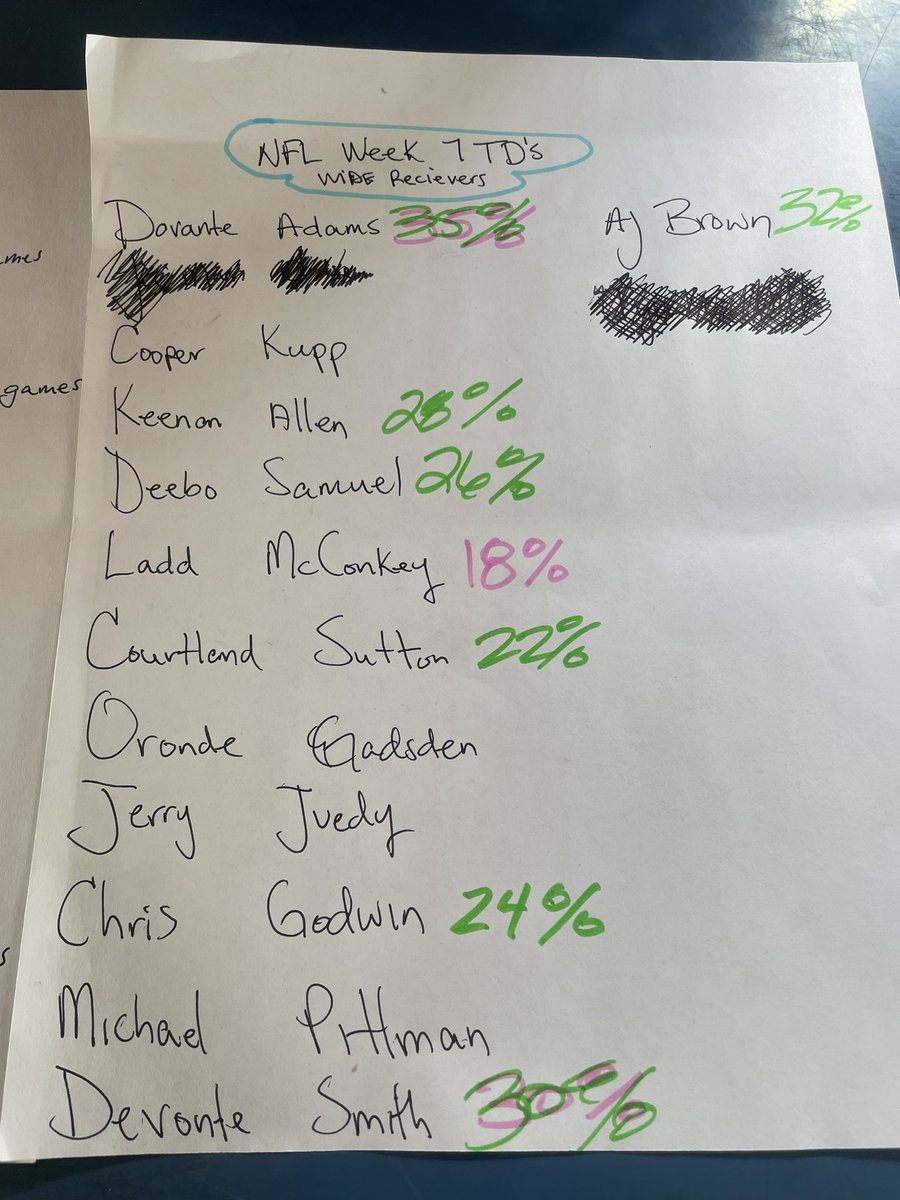 NFL Week 7 TD's
WIDE Recievers
Davante Adams 35%
AJ Brown 32%
Cooper Kupp
Keenan Allen 28%
Deebo Samuel 26%
Ladd McConkey 18%
Courtland Sutton 22%
Oronde Gadsden
Jerry Juedy
Chris Godwin 24%
Michael Pittman
Devonte Smith 30%
games